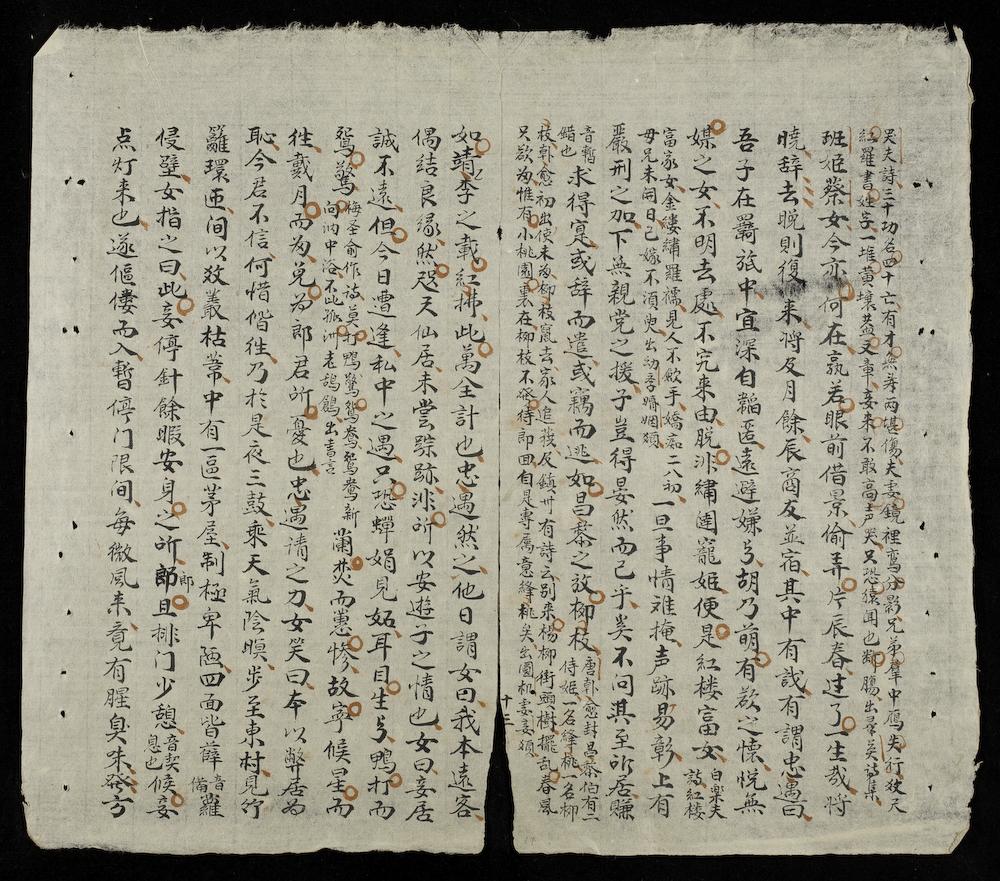 哭夫詩三十功名四十亡有才無寿両堪傷夫妻鏡裡鸞分影兄弟羣中鴈失行数尺
紅羅書姓字一堆黄壤盖文章妾来不敢高声哭只恐猿闻也断腸出羣英詩集
班姬蔡女今亦何在孰若眼前借景偷弄片辰春過了一生哉将
曉辞去晚則復来将及月餘辰商友並宿其中有識有謂忠遇曰
吾子在羇旅中宜深自韜匿遠避嫌乃胡乃萌有欲之懷悦無
媒之女不明去處不究来由脱非繡闺寵姬便是紅楼富女
白楽天詩紅楼
富家女金縷繡羅襦見人不歛手嬌痴二八初
母兄未開口已嫁不須臾出幼学婚姻類
一旦事情难掩声跡易彰上有
嚴刑之加下無親党之援子豈得晏然而已乎矣不问其至所賺
音暫
錯也
求得寔或辞而遣或竊而逃如昌黎之放柳枝
唐韓愈封昌黎伯有二
侍姬一名絳桃一名柳
枝韓愈初出使未为柳枝竄去家人追获及鎮州有詩云别来楊柳街頭樹擺乱春風
只欲为惟有小桃園裏在柳枝不發待郎回自是專属意絳桃矣出圆机妻妾類
十三
如靖李之載紅拂此萬全計也忠遇然之他日謂女曰我本遠客
偶结良缘然咫天仙居未嘗踪跡非所以安遊子之情也女曰妾居
誠不遠但今日遭逢私中之遇只恐蟬娟見妬耳目生乃鴨打而
鴛驚
梅圣俞作詩莫打鴨驚鴛鴦鴛鴦新
向池中浴不比孤洲老鴰鶬出書言
蘭焚而蕙惨故寧候星而
徃戴月而为兑为郎君所憂也忠遇请之力女笑曰本以弊居为
恥今君不信何惜偕徃乃於是夜三鼓乘天氣陰暝步至東村見竹
籬環匝间以数叢枯葦中有一區茅屋制極卑陋四面皆薜
音
備
蘿
侵壁女指之曰此妾停針餘暇安身之所郎且排门少憩
音契
息也
候妾
郎
点灯来也遂傴僂而入暫停门限间每微風来竟有腥臭味發方